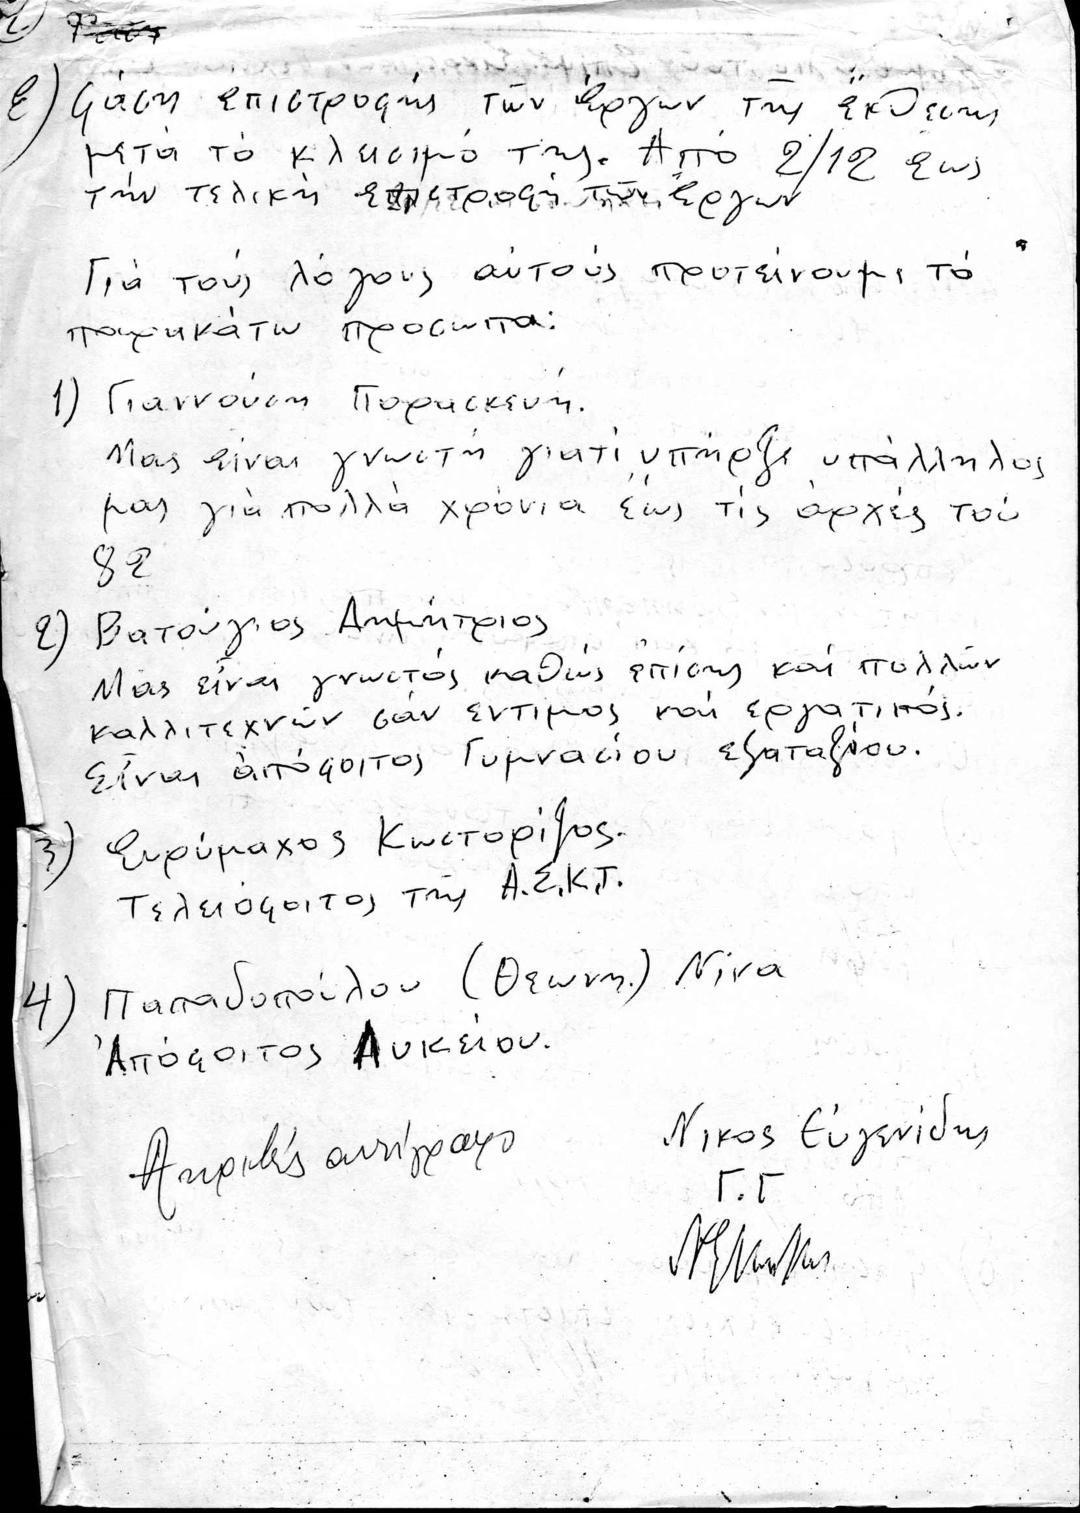 2)
ε) φάση επιστροφής τῶν έργων τῆς ἔκθεσης
μετά τό κλεισιμό της. Από 2/12 εως
τήν τελική επιστροφή τῶν έργων
Γιά τούς λόγους αὐτούς προτείνουμε τό
παρακάτω προσωπα:
1) Γιαννούση Παρασκευή.
Μας είναι γνωστή γιατί υπήρξε υπάλληλος
μας γιά πολλά χρόνια ἕως τίς ἀρχές τοῦ
82
2) Βατούγιος Δημήτριος
Μας εἶναι γνωστός καθώς ἐπίσης καί πολλῶν
καλλιτεχνῶν σάν εντιμος καί εργατικός.
Εἶναι ἀπόφοιτος Γυμνασίου εξαταξίου.
3) Ευρύμαχος Κωστορίζος.
Τελειόφοιτος τῆς Α.Σ.Κ.Τ.
4) Παπαδοπούλου (Θεωνη.) Νίνα
Ἀπόφοιτος Λυκείου.
Ακριβές αντίγραφο
Νικος Εὐγενίδης
Γ.Γ